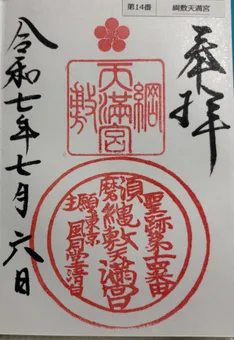 第14番 綱敷天満宮
奉拝
綱敷天満宮
聖跡第十四番
須磨
綱敷天満宮
願主
東京
令和七年七月六日